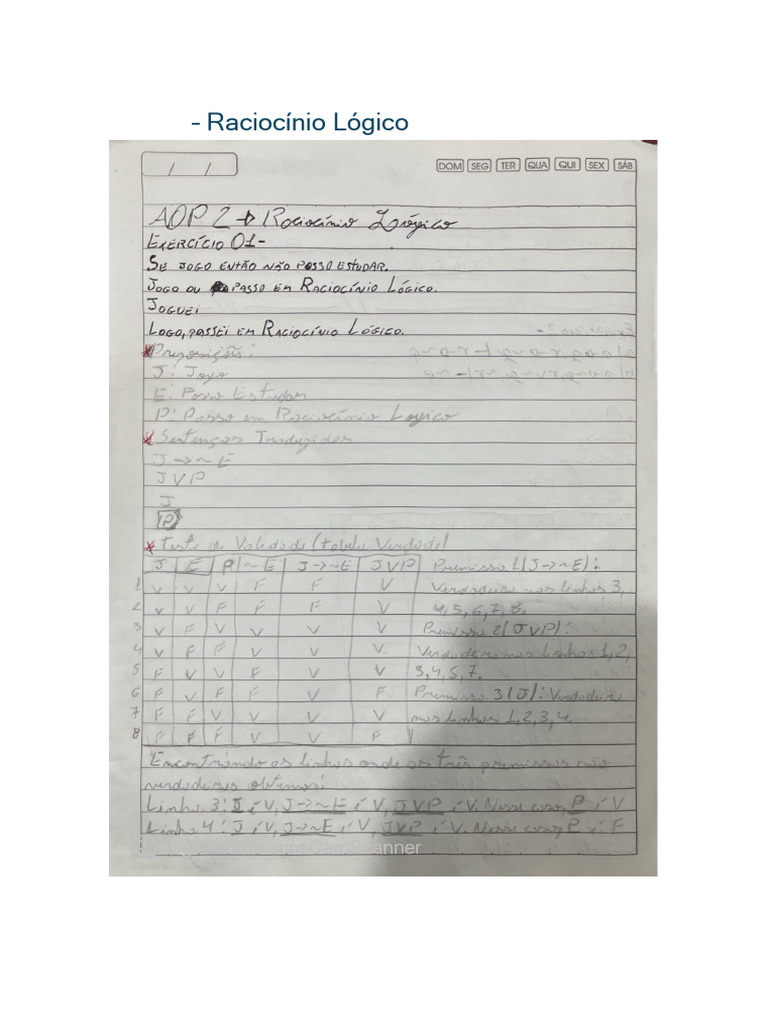 – Raciocínio Lógico
/ /
DOM SEG TER QUA QUI SEX SÁB
AOP 2 → Raciocínio Lógico
Exercício 01-
Se jogo então não posso estudar.
Jogo ou passo em Raciocínio Lógico.
Joguei
Logo, passei em Raciocínio Lógico.
* Proposições:
J: Jogo
E: Posso Estudar
P: Passo em Raciocínio Logico
* Sentenças Traduzidas
J → ~ E
J V P
J
P
* Teste de Validade (tabela Verdade)
J E P ~E J→~E JVP Premissa 1 (J→~E):
1 V V V F F V Verdadeira nas linhas 3,
2 V V F F F V 4, 5, 6, 7, 8.
3 V F V V V V Premissa 2 (JVP):
4 V F F V V V Verdadeira nas linhas 1, 2,
5 F V V F V V 3, 4, 5, 7.
6 F V F F V F Premissa 3 (J): Verdadeira
7 F F V V V V nas linhas 1, 2, 3, 4.
8 F F F V V F
Encontrando as linhas onde as três premissas são
verdadeiras obtemos:
Linha 3: J é V, J→~E é V, JVP é V. Nesse caso, P é V
Linha 4: J é V, J→~E é V, JVP é V. Nesse caso, P é F
CamScanner